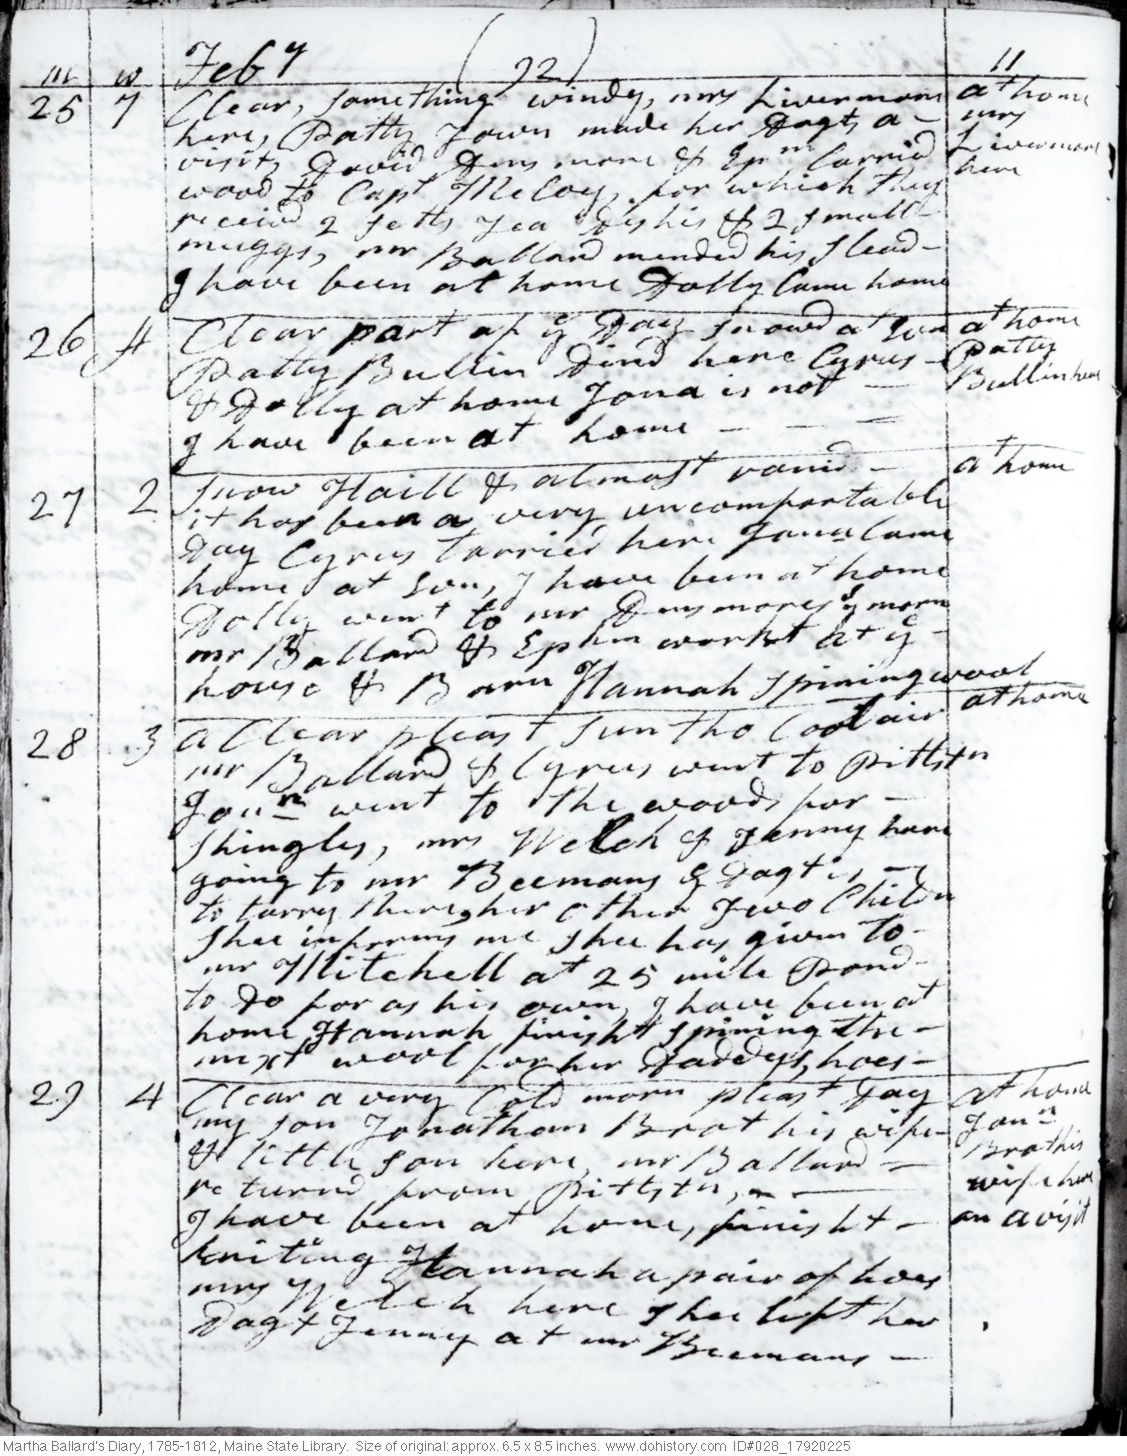 m w Feby (92) 11
25 7 Clear, something windy, mrs Livermore at home
here, Patty Town made her Dagts a - mrs
visit, David Densmore & Epm Carried Livermore
wood to Capt McCoy, for which they here
receivd 2 setts Tea Dishis & 2 small
muggs, mr Ballard mended his slead -
I have been at home Dolly Came home
26 Clear part of ye Day snowd at Son at home
Patty Bullin Dind here Cyrus - Patty
& Dolly at home Jona is not - Bullin here
I have been at home - - -
27 2 Snow Haill & almost raind - at home
it has been a very uncomfortable
Day Cyrus tarried here Jona Came
home at Son, I have been at home
Dolly went to mr Densmores ys morn
mr Ballard & Ephm workt at ye -
house & Barn Hannah spining wool
28 3 a Clear pleast Sun tho Cool air at home
mr Ballard & Cyrus went to Pittstn
Jonn went to the woods for -
shingles, mrs Welch & Jenny here
going to mr Beemans ye Dagt is
to tarry there, her other Two Childn
Shee informs me shee has given to -
mr Mitchell at 25 mile Pond -
to Do for as his own, I have been at
home, Hannah finisht spining the -
mixt wool for her Daddys hoes -
29 4 Clear a very Cold morn pleast Day at home
my son Jonathan Brot his wife Jonn
& little son here, mr Ballard - Brot his
returnd from Pittstn, - wife here
I have been at home, finisht - on a visit
kniting Hannah a pair of hoes
mrs Welch here shee left her
Dagt Jenny at mr Beemans -
Martha Ballard's Diary, 1785-1812, Maine State Library. Size of original: approx. 6.5 x 8.5 inches. www.dohistory.com ID#028_17920225